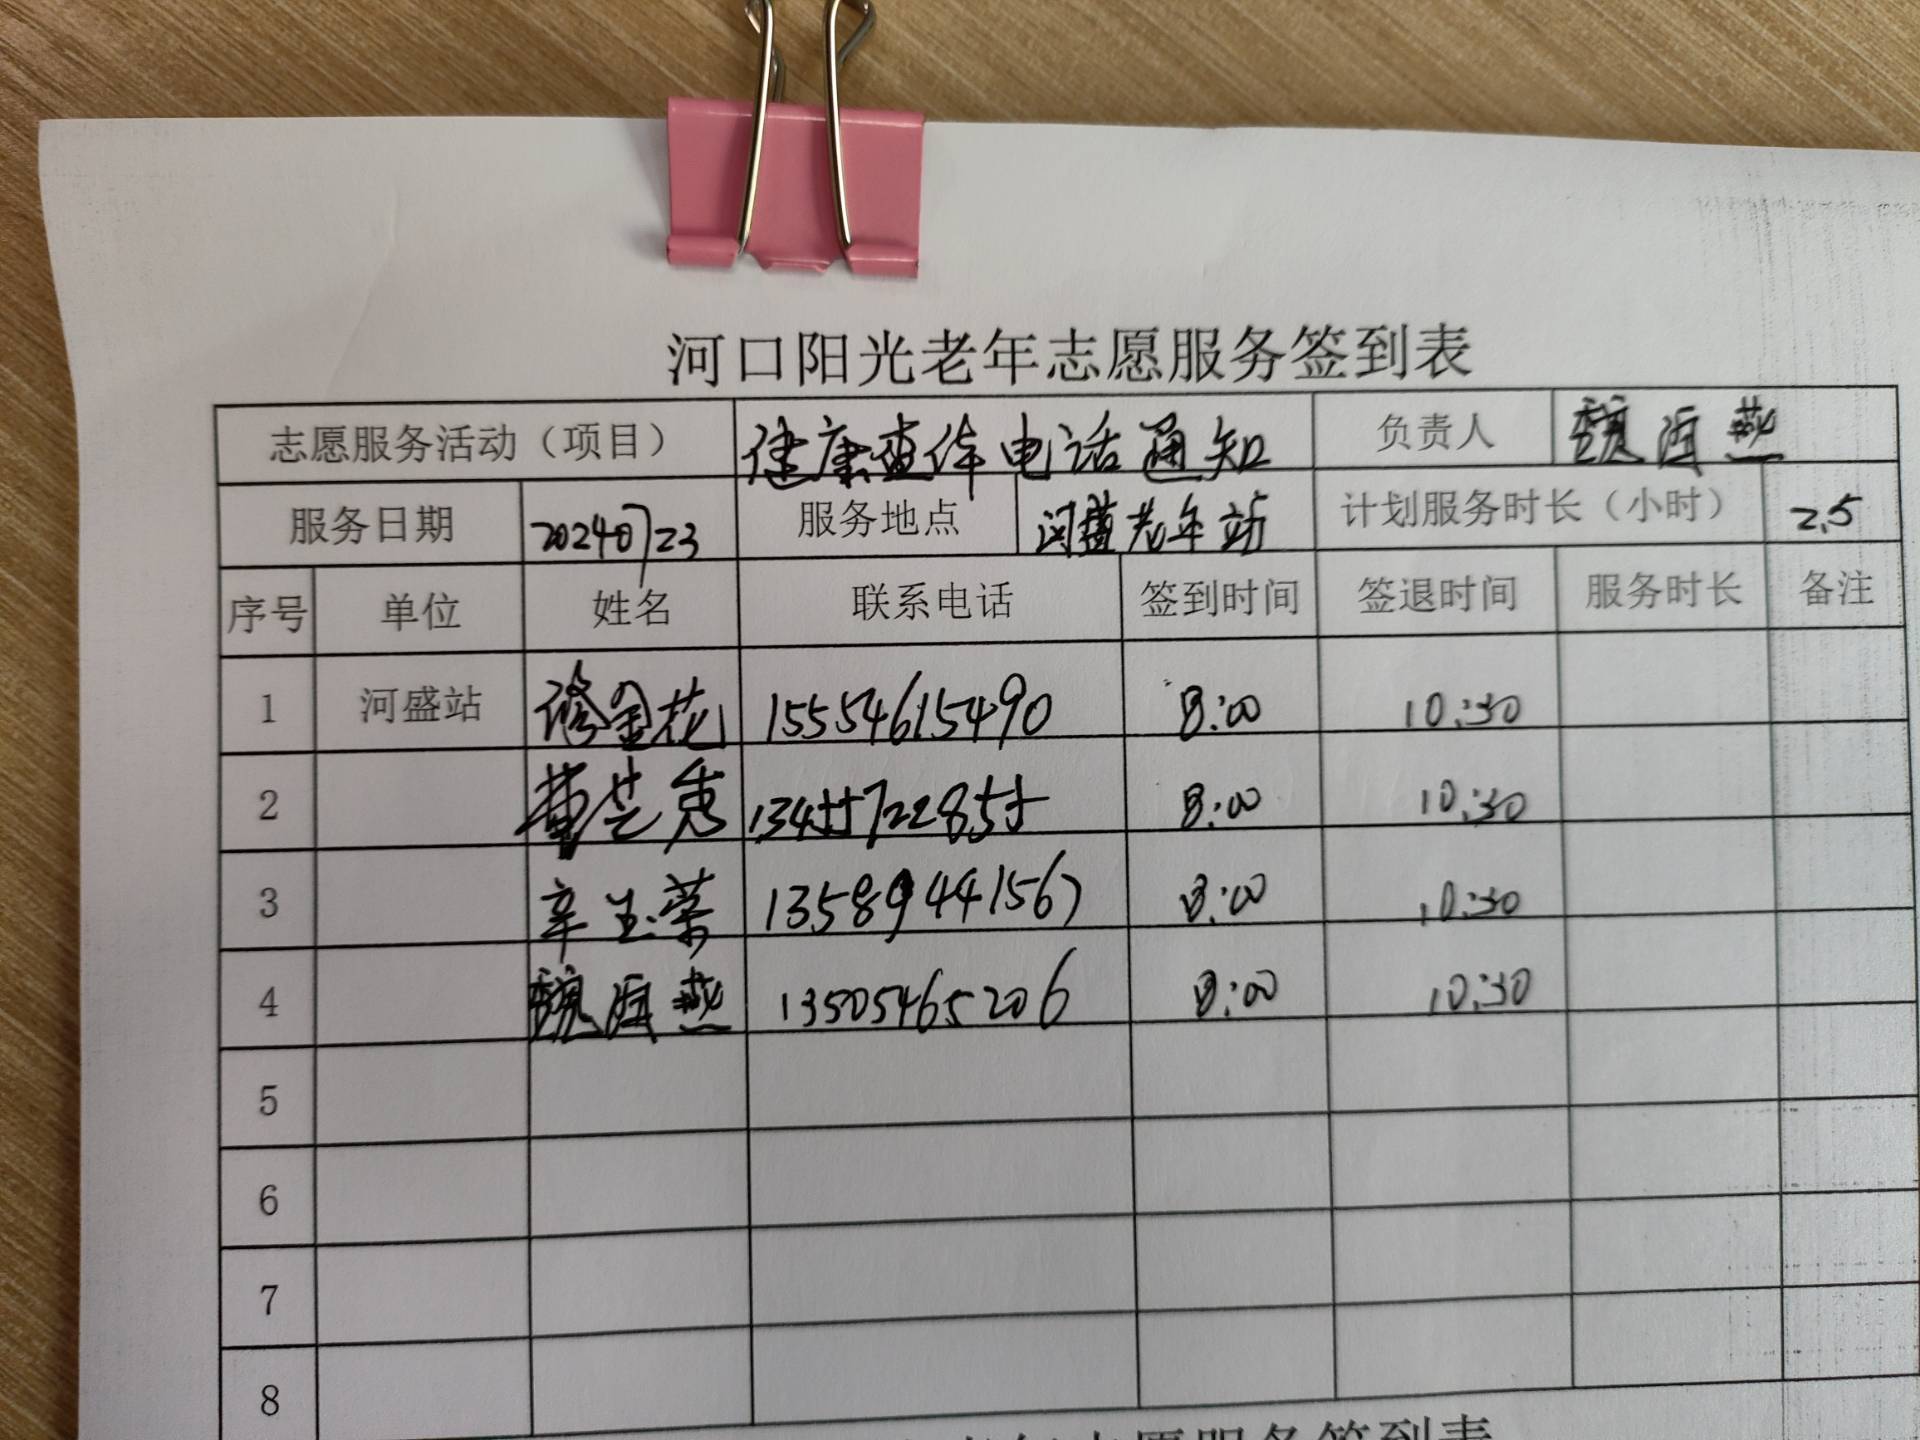 河口阳光老年志愿服务签到表
志愿服务活动（项目） 健康查体电话通知 负责人 魏海燕
服务日期 20240723 服务地点 河盛老年站 计划服务时长（小时） 2.5
序号 单位 姓名 联系电话 签到时间 签退时间 服务时长 备注
1 河盛站 修金花 15554615490 8:00 10:30
2 曹兰秀 13455722855 8:00 10:30
3 辛玉荣 13589441567 8:00 10:30
4 魏海燕 13505465206 8:00 10:30
5
6
7
8
老年志愿服务签到表